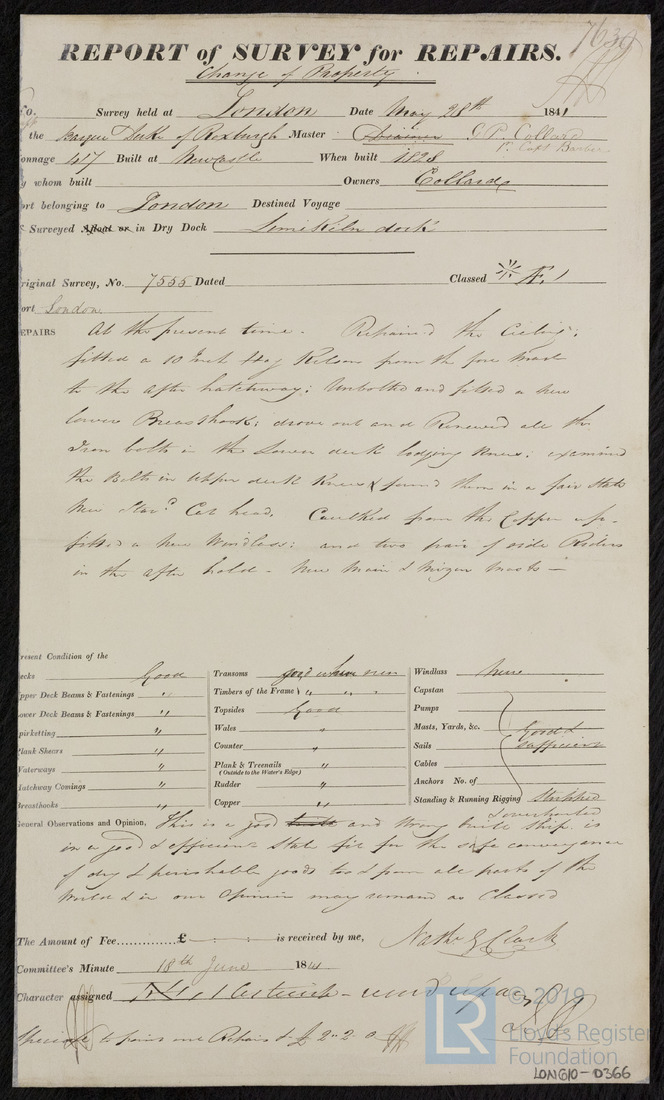 7639
REPORT of SURVEY for REPAIRS.
Change of Property
No. Survey held at London Date May 28th 1841
the Barque Duke of Roxburgh Master G P Collard
Pr Capt Barber
onnage 417 Built at Newcastle When built 1828
y whom built Owners Collard &
ort belonging to London Destined Voyage
Surveyed Afloat or in Dry Dock Limekiln dock
riginal Survey, No. 7555 Dated Classed Æ 1
ort London
EPAIRS At the present time. Repaired the Ceiling;
fitted a 10 Inch Hog Kelson from the fore Mast
to the after hatchway; Unbolted and fitted a new
lower Breasthook; drove out and Renewed all the
Iron bolts in the Lower deck lodging Knees; examined
the Bolts in Upper deck Knees & found them in a fair State
New Starbd Cat head. Caulked from the Copper up.
fitted a New Windlass; and two pair of side Riders
in the after hold - New Main & Mizen Masts -
resent Condition of the
ecks Good
pper Deck Beams & Fastenings "
ower Deck Beams & Fastenings "
pirketting "
lank Shears "
Waterways "
atchway Comings "
reasthooks "
Transoms good where seen
Timbers of the Frame " " "
Topsides Good
Wales "
Counter "
Plank & Treenails "
(Outside to the Water's Edge)
Rudder "
Copper "
Windlass New
Capstan
Pumps
Masts, Yards, &c. Good &
Sails sufficient
Cables
Anchors No. of
Standing & Running Rigging Stripped
& overhauled
eneral Observations and Opinion, This is a good and strong built ship is
in a good & efficient State fit for the safe conveyance
of dry & perishable goods to & from all parts of the
World & in our Opinion may remain as Classed
The Amount of Fee £ is received by me, Nathl G Clark
Committee's Minute 18th June 1841
Character assigned Æ 1 Asterisk - and repairs
Special to pairs one Repairs £ 2 " 2 " 0
LR
© 2019
Lloyd's Register
Foundation
LON610-0366